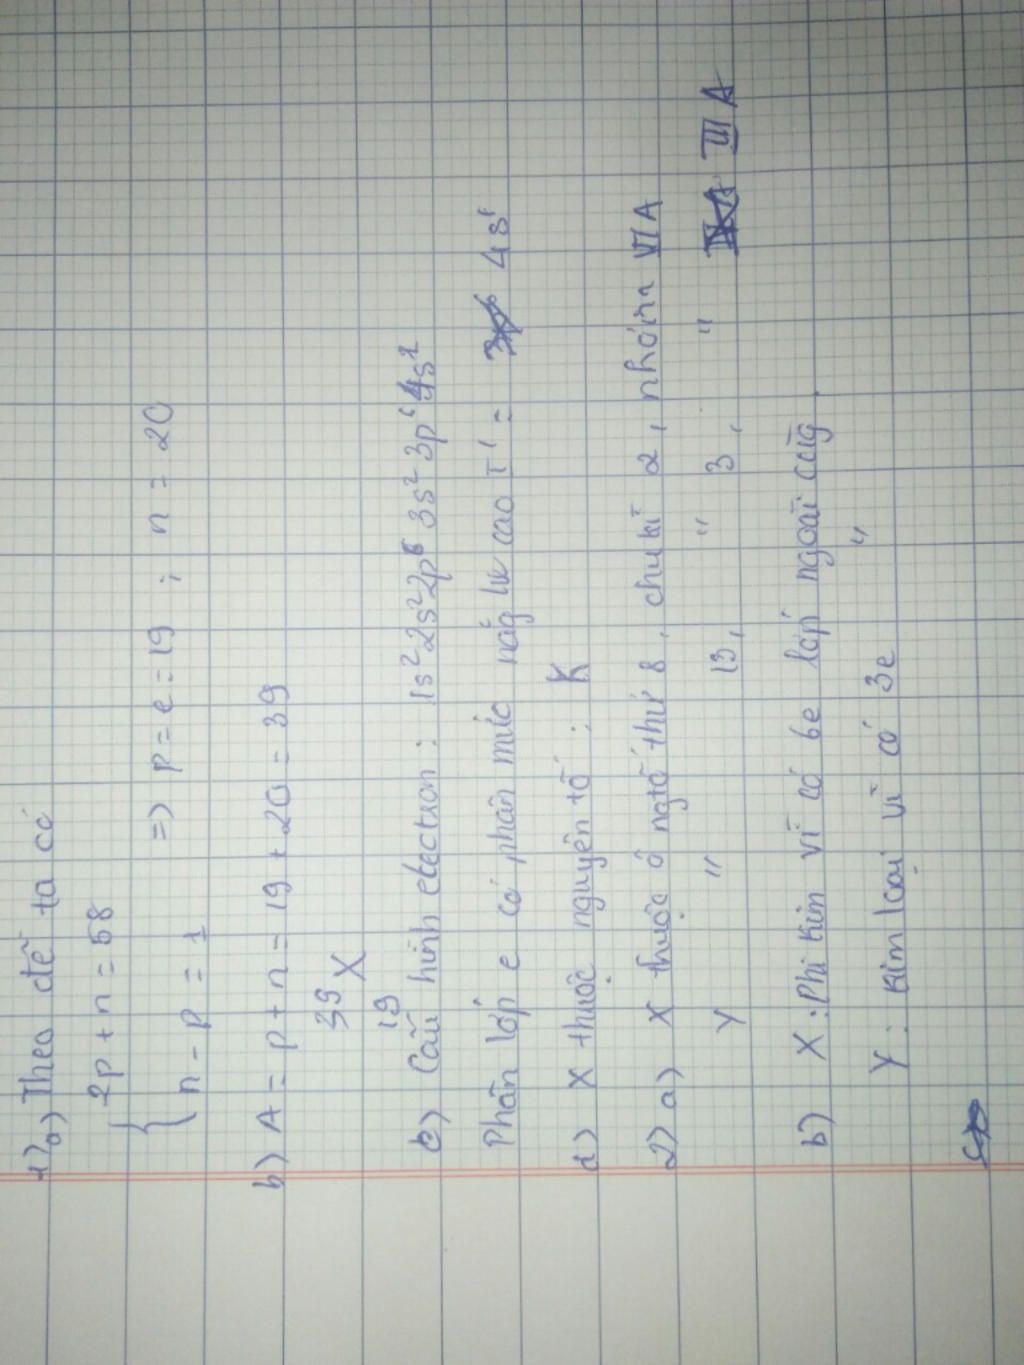 1) a) Theo đề ta có
2p + n = 58
n - p = 1 => p = e = 19 ; n = 20
b) A = p + n = 19 + 20 = 39
39
19 X
c) Cấu hình electron : 1s² 2s² 2p⁶ 3s² 3p⁶ 4s¹
Phân lớp e có phân mức năg lx cao I' : 4s¹
d) X thuộc nguyên tố : K
2) a) X thuộc ô ngtố thứ 8, chu kì 2, nhóm VI A
Y " 13, " 3, " III A
b) X : Phi kim vì có 6e lớp ngoài cùg.
Y : kim loại vì có 3e "